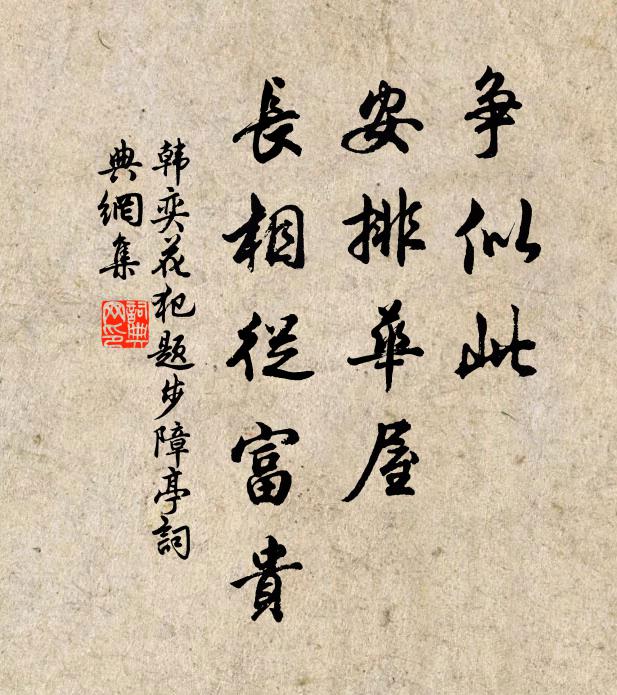 争似此
安排華屋
長相從富貴
韩奕花犯题步障亭詞
典網集
詞典網印